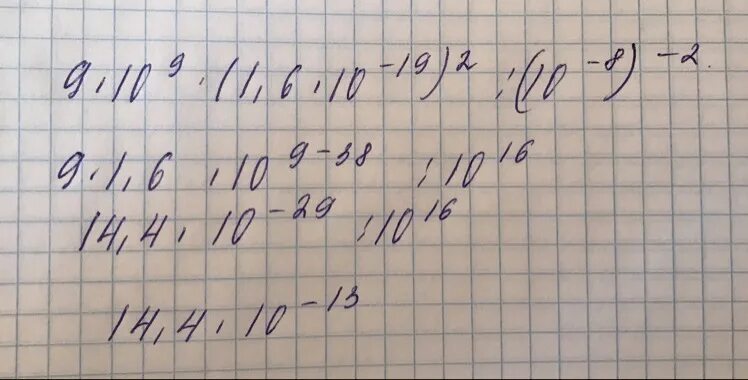 9·10⁹·(1,6·10⁻¹⁹)² :(10⁻⁸)⁻².
9·1,6 ·10⁹⁻³⁸ :10¹⁶
14,4· 10⁻²⁹ :10¹⁶
14,4·10⁻¹³